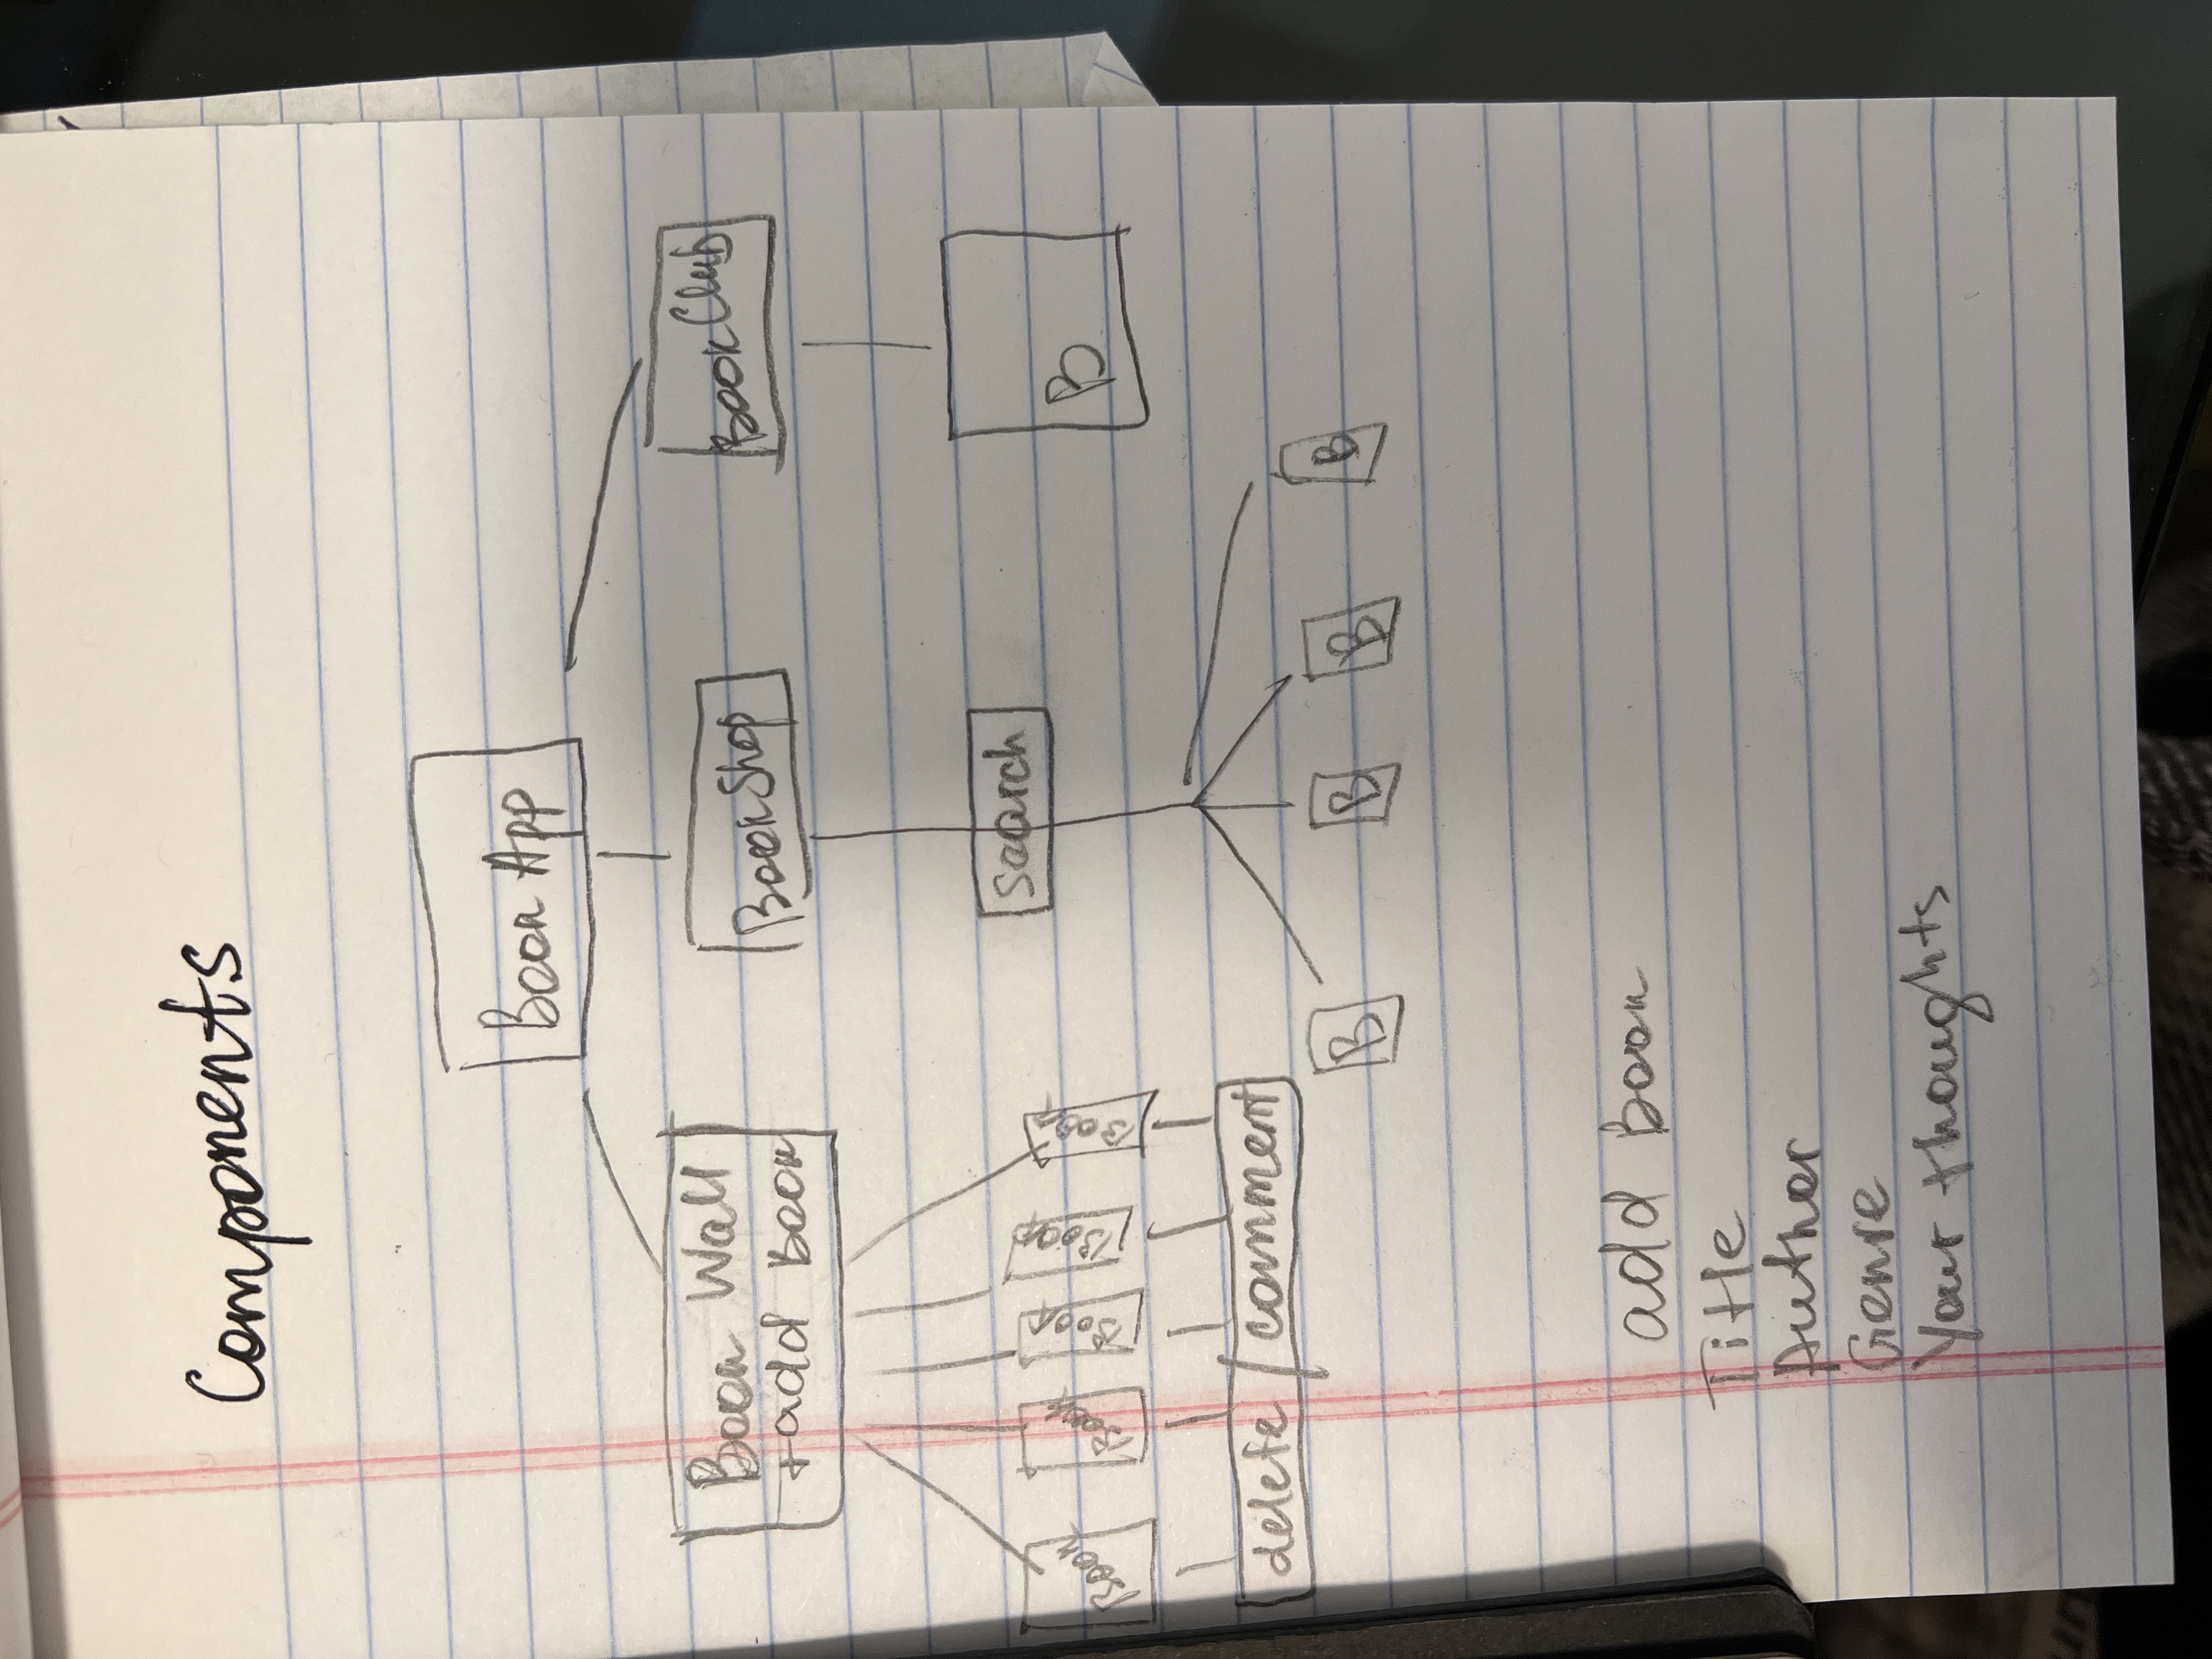 Components
Book App
Book Wall
+add Book
Book Shop
Book Club
Book
Book
Book
Book
Book
search
B
delete / comment
B
B
B
B
add Book
Title
Author
Genre
Your thoughts